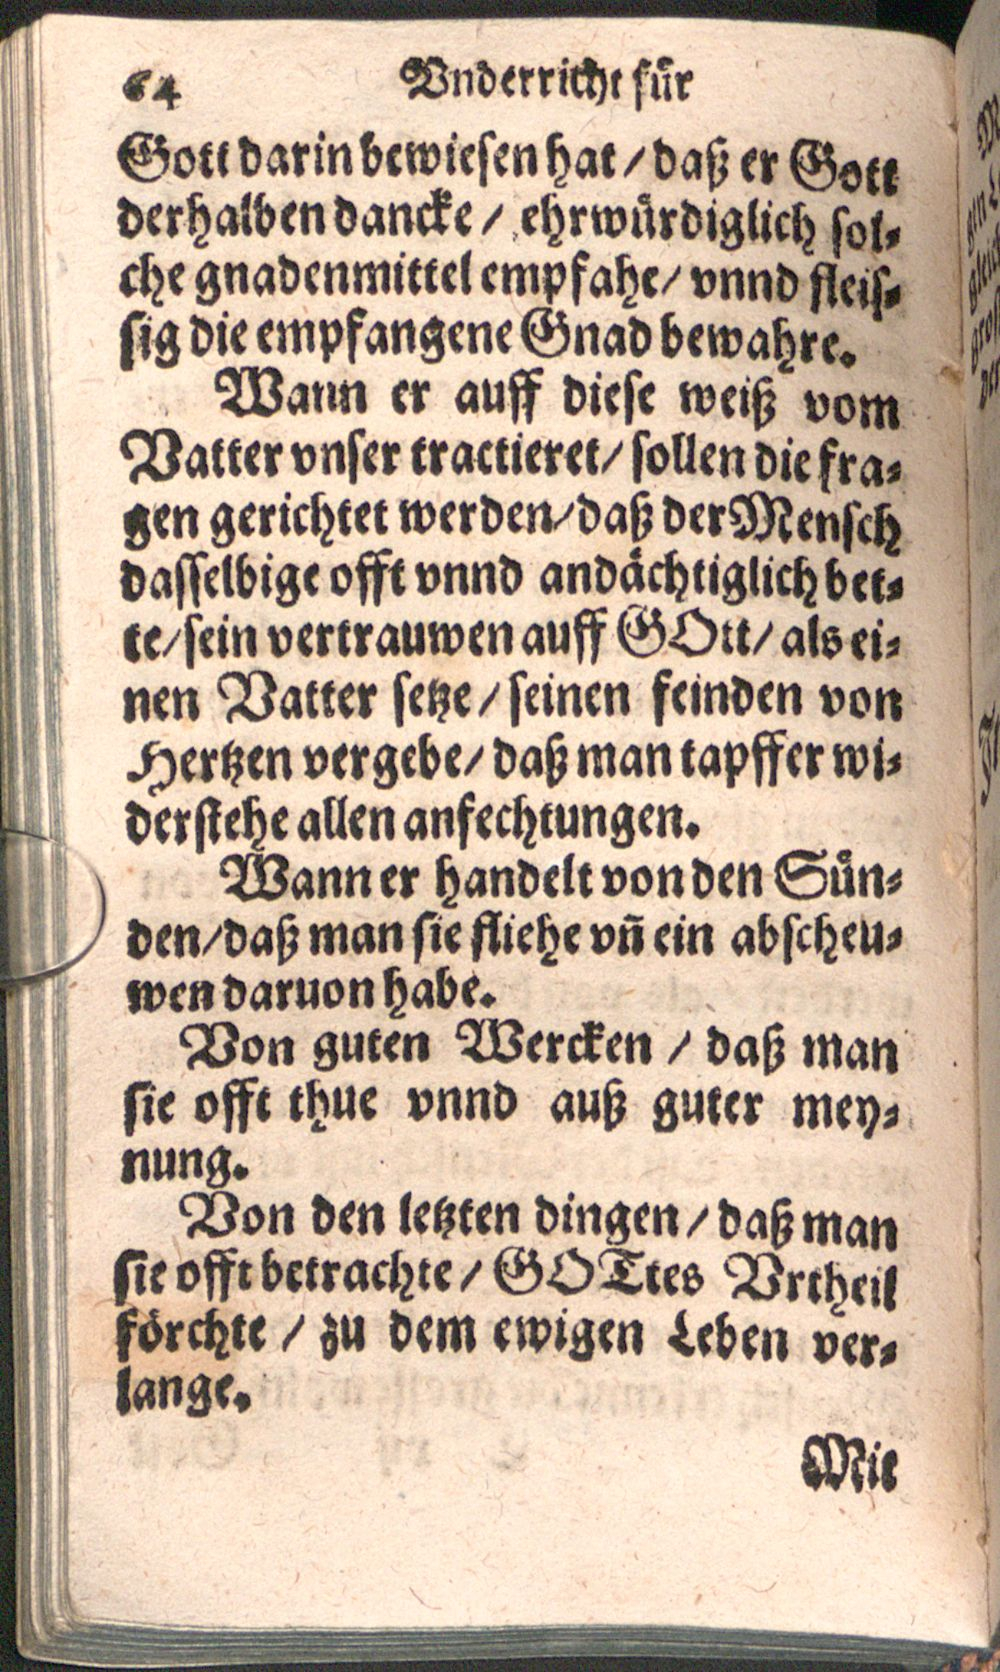 64 Vnderricht für
Gott darin bewiesen hat / daß er Gott
derhalben dancke / ehrwürdiglich sol-
che gnadenmittel empfahe / vnnd fleis-
sig die empfangene Gnad bewahre.
Wann er auff diese weiß vom
Vatter vnser tractieret / sollen die fra-
gen gerichtet werden / daß der Mensch
dasselbige offt vnnd andächtiglich bet-
te / sein vertrauwen auff GOtt / als ei-
nen Vatter setze / seinen feinden von
Hertzen vergebe / daß man tapffer wi-
derstehe allen anfechtungen.
Wann er handelt von den Sün-
den / daß man sie fliehe vn̄ ein abscheu-
wen daruon habe.
Von guten Wercken / daß man
sie offt thue vnnd auß guter mey-
nung.
Von den letzten dingen / daß man
sie offt betrachte / GOTtes Vrtheil
förchte / zu dem ewigen Leben ver-
lange.
Mit